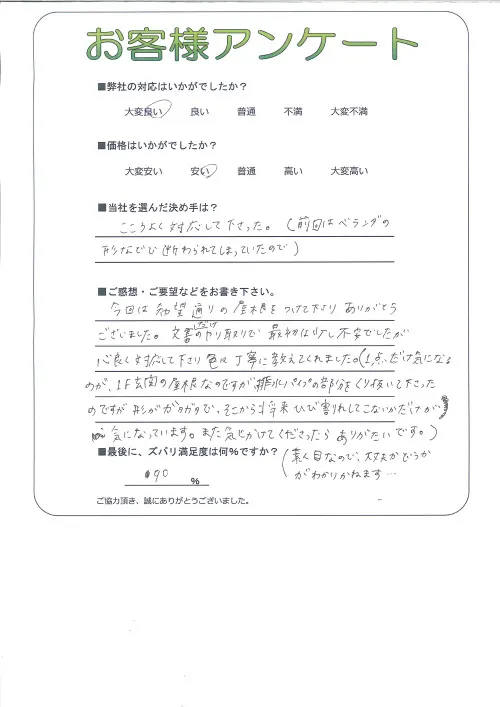 お客様アンケート
■弊社の対応はいかがでしたか？
大変良い 良い 普通 不満 大変不満
■価格はいかがでしたか？
大変安い 安い 普通 高い 大変高い
■当社を選んだ決め手は？
こころよく対応して下さった。（前回はベランダの
形などで断わられてしまっていたので）
■ご感想・ご要望などをお書き下さい。
今回は希望通りの屋根をつけて下さりありがとう
ございました。文書だけのやり取りで最初は少し不安でしたが
心良く対応して下さり色々丁寧に教えてくれました。（1点だけ気になる
のが、1F玄関の屋根なのですが排水パイプの部分をくり抜いて下さった
のですが形がガタガタで、そこから将来ひび割れしてこないかだけが
気になっています。また気にかけてくださったらありがたいです。）
■最後に、ズバリ満足度は何％ですか？
（素人目なので、大丈夫かどうか
がわかりかねます…
90 ％
ご協力頂き、誠にありがとうございました。